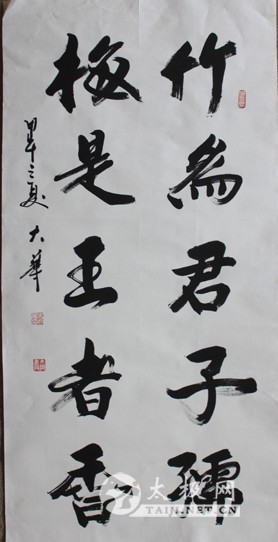 竹為君子孺
梅是王者香
甲午之夏 大華
太极网
TAIJI.NET.CN